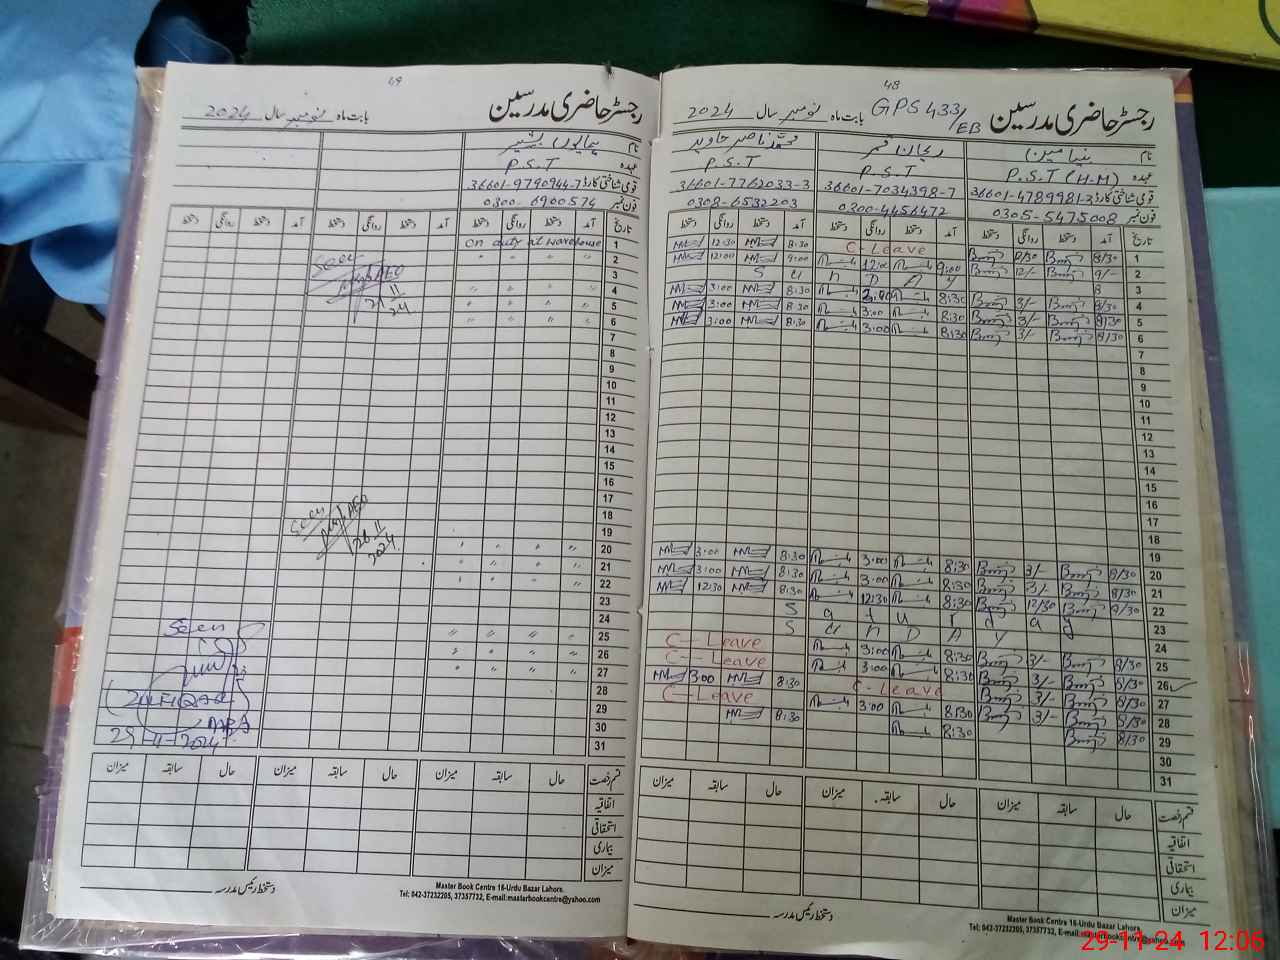 48
رجسٹر حاضری مدرسین GPS 433/EB بابت ماہ نومبر سال 2024
نام بنیامین ریحان قمر محمد ناصر جاوید
عہدہ P.S.T (H-M) P.S.T P.S.T
قومی شناختی کارڈ 36601-4789981-3 36601-7034398-7 36601-7762033-3
فون نمبر 0305-5475008 0300-4456472 0308-6532203
تاریخ آمد دستخط روانگی دستخط آمد دستخط روانگی دستخط آمد دستخط روانگی دستخط
1 8/30 8/30 C-Leave 8:30 12:30
2 9/- 12/- 9:00 12:00 9:00 12:00
3 S U N D A Y
4 8/30 3/- 8:30 8:30 3:00
5 8/30 3/- 8:30 3:00 8:30 3:00
6 8/30 3/- 8:30 3:00 8:30 3:00
7
8
9
10
11
12
13
14
15
16
17
18
19
20 8/30 3/- 8:30 3:00 8:30 3:00
21 8/30 3/- 8:30 3:00 8:30 3:00
22 8/30 12/30 8:30 12:30 8:30 12:30
23 S a t u r d a y
24 S U N D A Y
25 8/30 3/- 8:30 3:00 C-Leave
26 8/30 3/- 8:30 3:00 C-Leave
27 8/30 3/- C-Leave 8:30 3:00
28 8/30 3/- 8:30 3:00 C-Leave
29 8/30 8:30 8:30
30
31
قسم رخصت حال سابقہ میزان حال سابقہ میزان حال سابقہ میزان
اتفاقیہ
استحقاقی
بیماری
میزان
دستخط رئیس مدرسہ
Master Book Centre 16-Urdu Bazar Lahore.
Tel: 042-37232205, 37357732, E-mail:masterbookcentre@yahoo.com
49
رجسٹر حاضری مدرسین بابت ماہ نومبر سال 2024
نام ہمایوں بشیر
عہدہ P.S.T
قومی شناختی کارڈ 36601-9790944-7
فون نمبر 0300-6900574
تاریخ آمد دستخط روانگی دستخط آمد دستخط روانگی دستخط آمد دستخط روانگی دستخط
1 on duty at warehouse
2 " " " "
3
4 " " " "
5 " " " "
6 " " " "
7
8
9
10
11
12
13
14
15
16
17
18
19
20 " " " "
21 " " " "
22 " " " "
23
24
25 " " " "
26 " " " "
27 " " " "
28
29
30
31
Seen
AEO
21-11
24
Seen
AEO
26-11
2024
Seen
29-11-2024
قسم رخصت حال سابقہ میزان حال سابقہ میزان حال سابقہ میزان
اتفاقیہ
استحقاقی
بیماری
میزان
دستخط رئیس مدرسہ
Master Book Centre 16-Urdu Bazar Lahore.
Tel: 042-37232205, 37357732, E-mail:masterbookcentre@yahoo.com
29-11-24 12:06